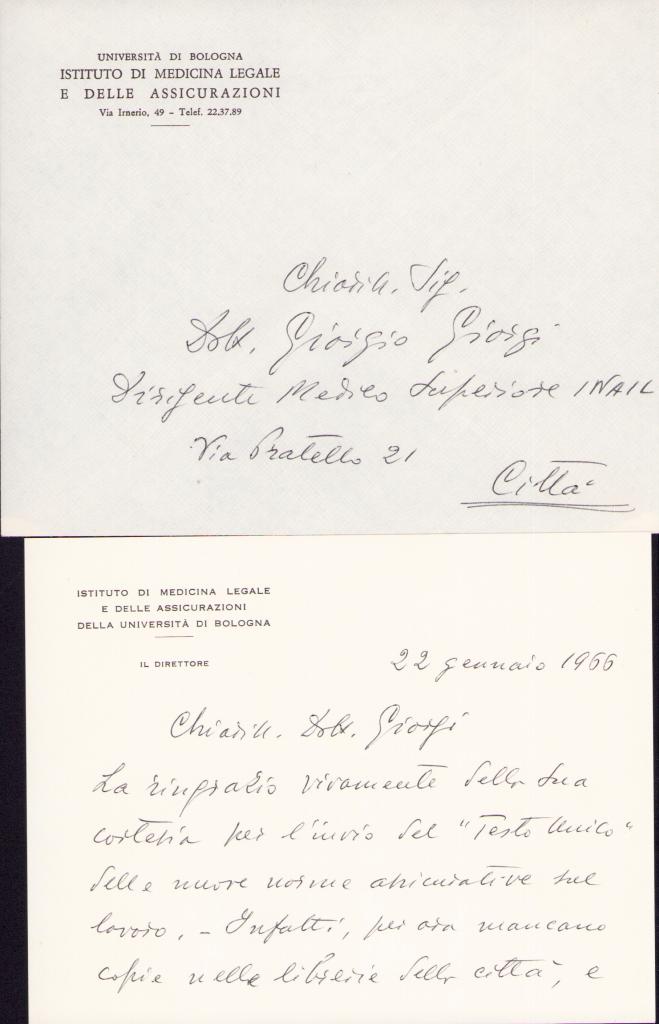 UNIVERSITÀ DI BOLOGNA
ISTITUTO DI MEDICINA LEGALE
E DELLE ASSICURAZIONI
Via Irnerio, 49 – Telef. 22.37.89
Chiariss. Sig.
Dott. Giorgio Giorgi
Dirigente Medico Superiore INAIL
Via Pratello 21
Città
ISTITUTO DI MEDICINA LEGALE
E DELLE ASSICURAZIONI
DELLA UNIVERSITÀ DI BOLOGNA
IL DIRETTORE
22 gennaio 1966
Chiariss. Dott. Giorgi
La ringrazio vivamente della sua
cortesia per l'invio del "Testo Unico"
delle nuove norme assicurative sul
lavoro. – Infatti, per ora mancano
copie nelle librerie della città, e